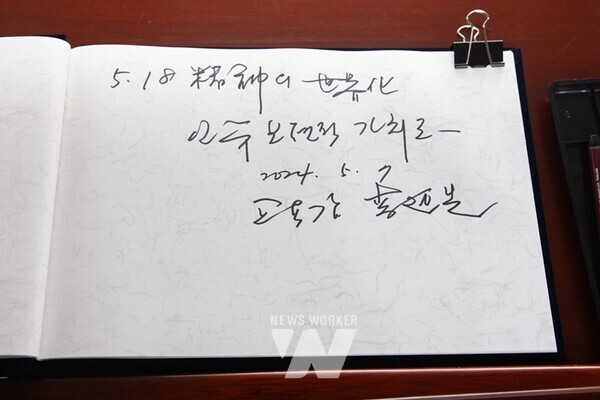 5.18 精神의 世界化
인류 보편적 가치로-
2024. 5. 7
교육감 李
NEWS WORKER